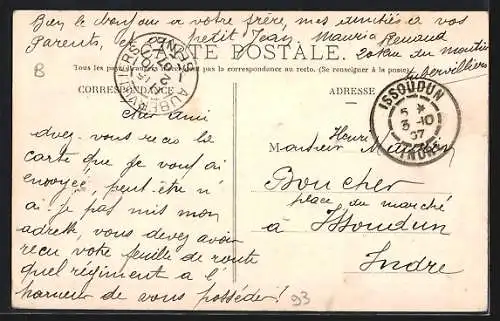 Bien le bonjour a votre frère, mes amitiés a vos
Parents, et petit Jean Maurice Renaud
CARTE POSTALE.
20 rue du moutier
Aubervilliers
Tous les pays étrangers n'acceptent pas la correspondance au recto. (Se renseigner à la poste)
B
CORRESPONDANCE
ADRESSE
AUBERVILLIERS
SEINE
ISSOUDUN
5 *
3 -10
07
INDRE
Cher ami
Avez-vous recu la
carte que je vous ai
envoyée, peut-être n'
ai-je pas mis mon
adresse, vous devez avoir
recu votre feuille de route
quel régiment a l'
honneur de vous posséder!
Monsieur
Boucher
place du marché
à Issoudun
Indre
93